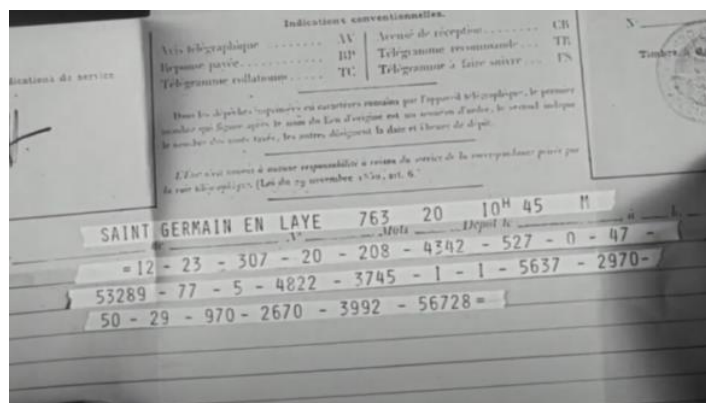 Indications conventionnelles.
Avis télégraphique ........ AV
Réponse payée............ RP
Télégramme collationné..... TC
Accusé de réception........ CR
Télégramme recommandé... TR
Télégramme à faire suivre... FS
N°
Timbre à
Indications de service
Dans les dépêches imprimées en caractères romains par l'appareil télégraphique, le premier
nombre qui figure après le nom du lieu d'origine est un numéro d'ordre, le second indique
le nombre des mots taxés, les autres désignent la date et l'heure de dépôt.
L'État n'est soumis à aucune responsabilité à raison du service de la correspondance privée par
la voie télégraphique. (Loi du 29 novembre 1850, art. 6.
SAINT GERMAIN EN LAYE 763 20 10H 45 M
N° Mots Dépôt le à h.
=12 - 23 - 307 - 20 - 208 - 4342 - 527 - 0 - 47 -
53289 - 77 - 5 - 4822 - 3745 - 1 - 1 - 5637 - 2970-
50 - 29 - 970- 2670 - 3992 - 56728=